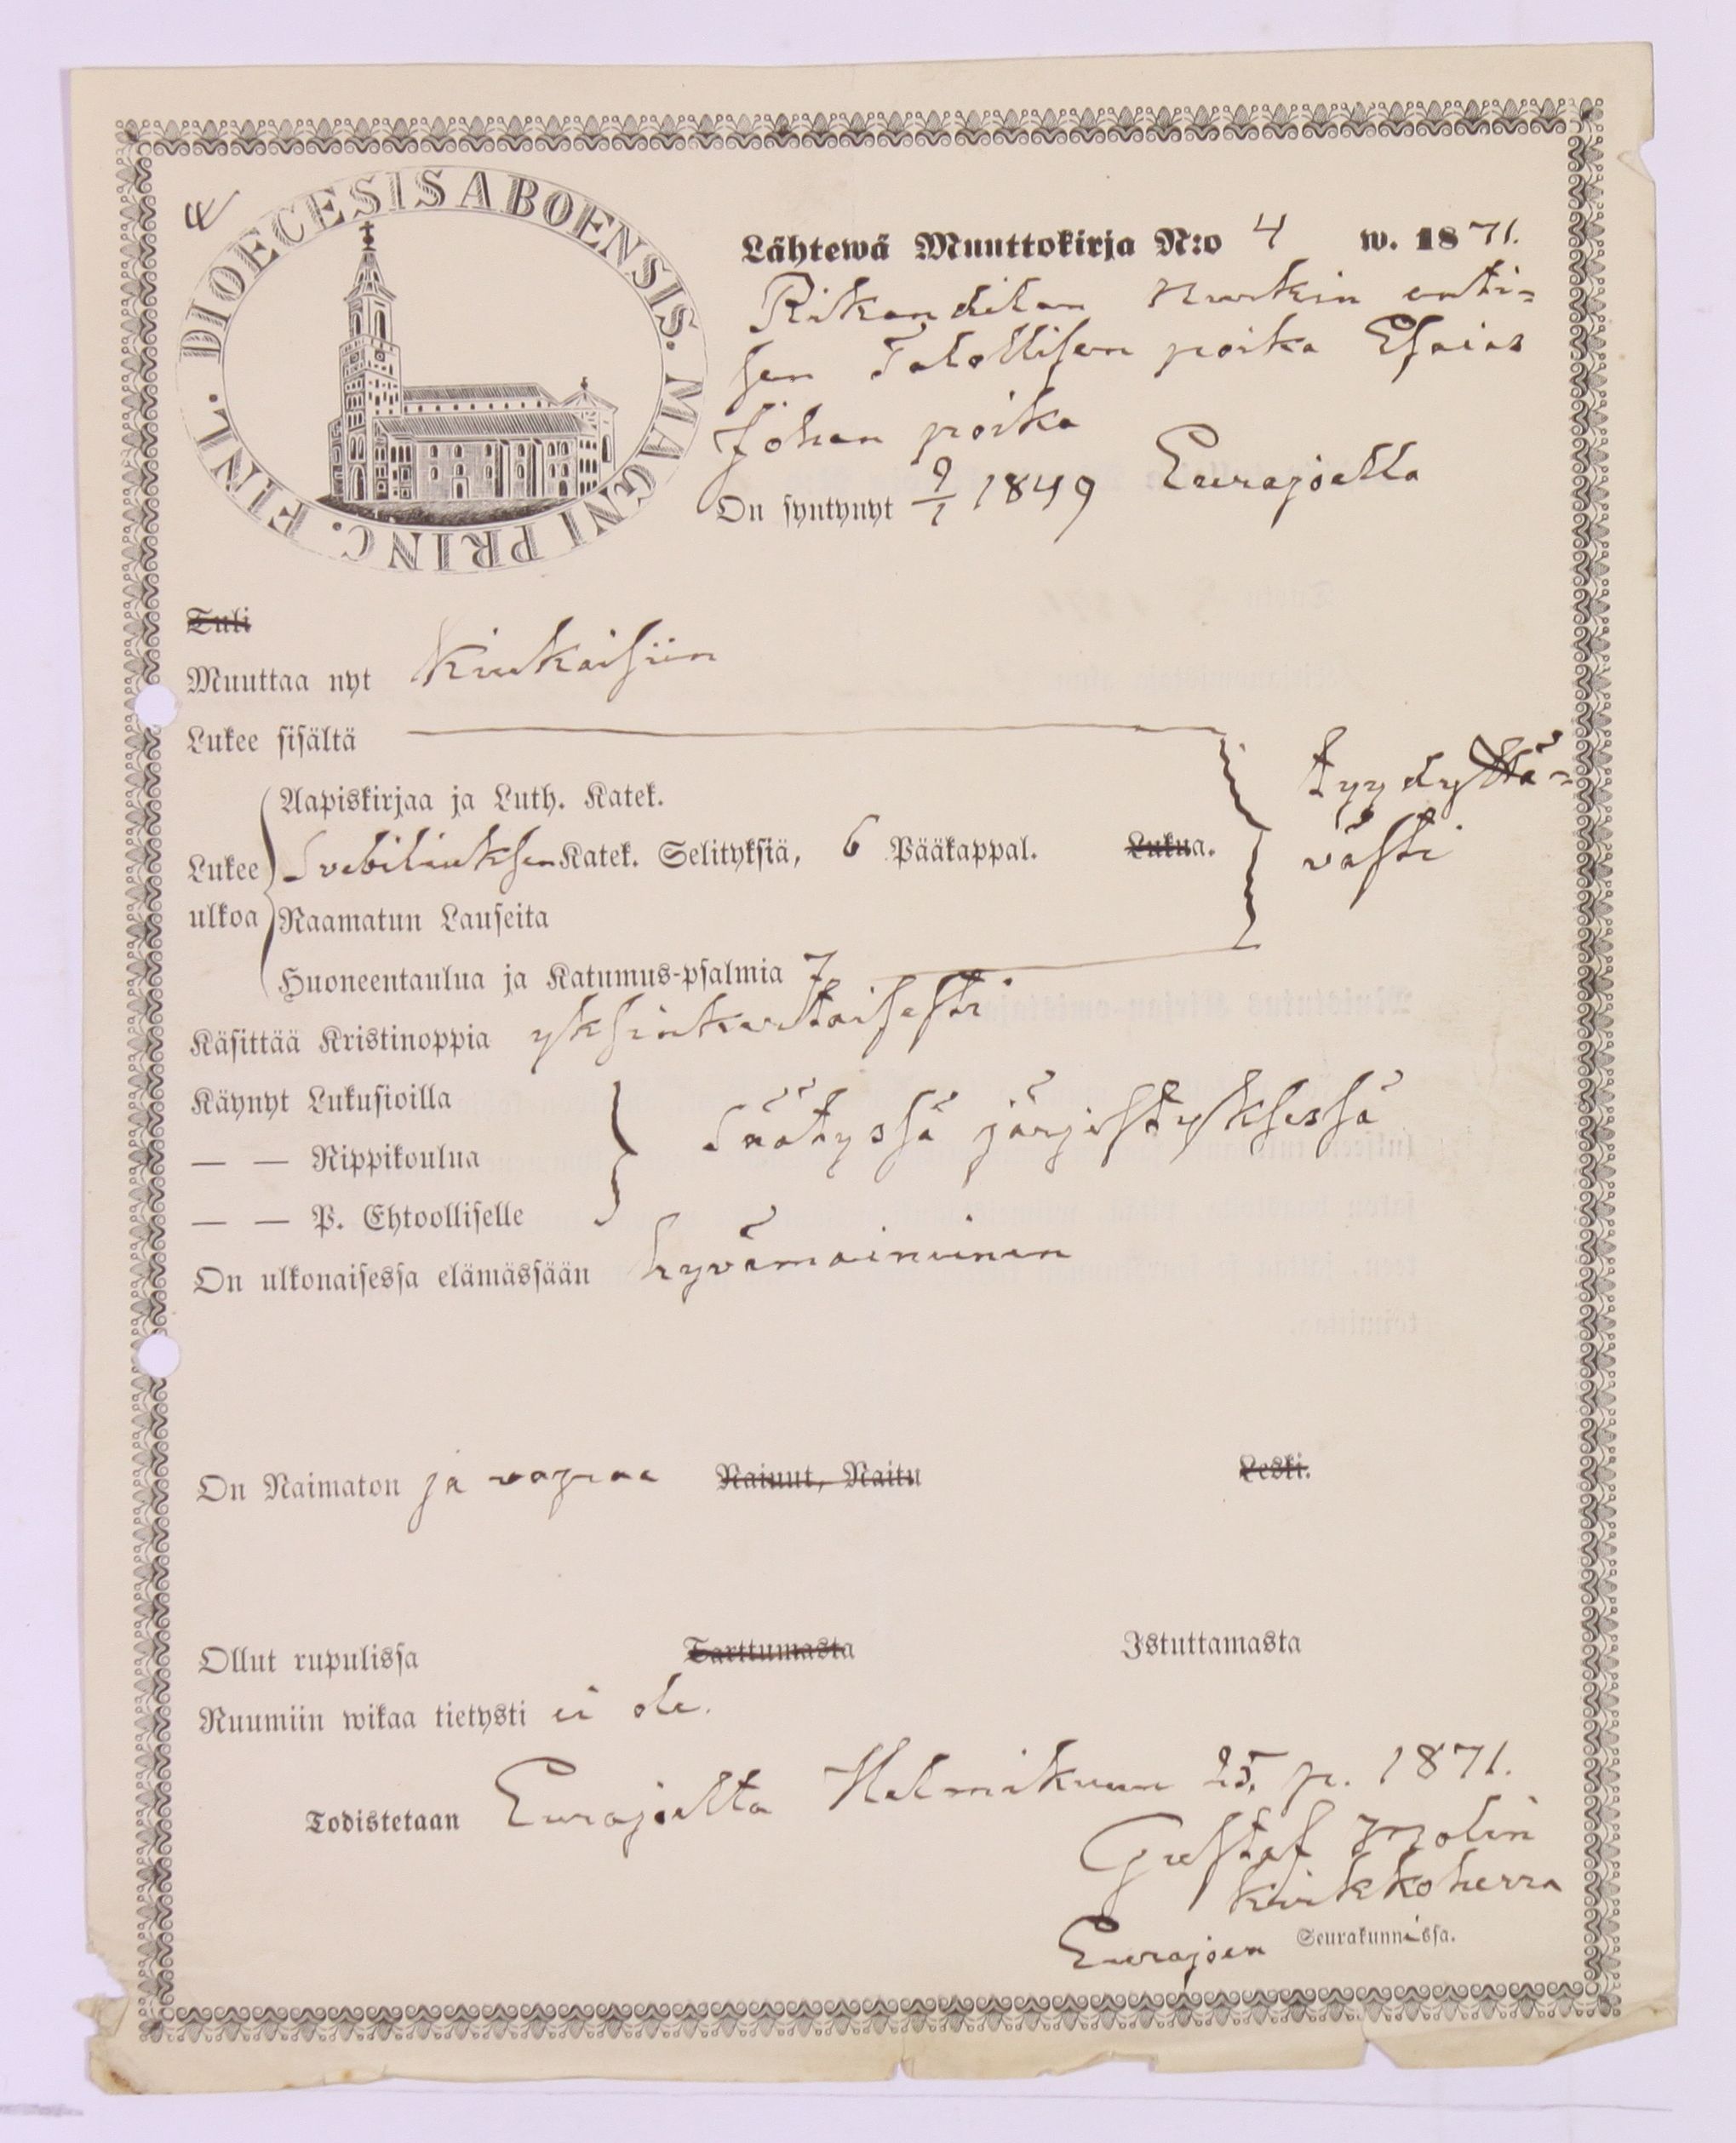 DIOECESIS ABOENSIS. MAGNI PRINC. FINL.
Lähtewä Muuttokirja N:o 4 w. 1871.
Rikandilan Kurkin enti-
sen Talollisen poika Esaias
Johan poika
On syntynyt 9/1 1849 Eurajoella
Tuli
Muuttaa nyt Kiukaisiin
Lukee sisältä
Aapiskirjaa ja Luth. Katek.
tyydyttä-
västi
Lukee ulkoa
Svebiliuksen Katek. Selityksiä, 6 Pääkappal. Lukua.
Raamatun Lauseita
Huoneentaulua ja Katumus-psalmia 7
Käsittää Kristinoppia yksinkertaisesti
Käynyt Lukusioilla
— — Rippikoulua
Säätyssä järjestyksessä
— — P. Ehtoolliselle
On ulkonaisessa elämässään hyvämaineinen
On Naimaton ja vapaa Nainut, Naitu Leski.
Ollut rupulissa Tarttumasta Istuttamasta
Ruumiin wikaa tietysti ei ole.
Todistetaan Eurajoelta Helmikuun 25 p. 1871.
Gustaf Molin
Kirkkoherra
Eurajoen Seurakunnissa.